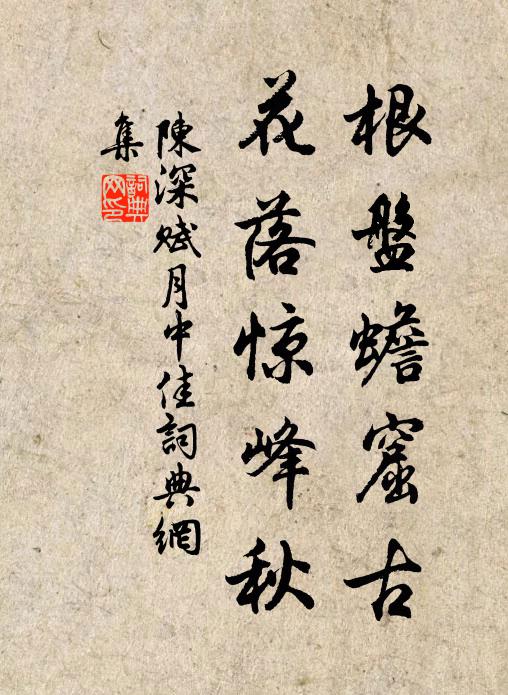 根盤蟾窟古
花落惊峰秋
陳深赋月中佳詞典網
集
詞典
网印